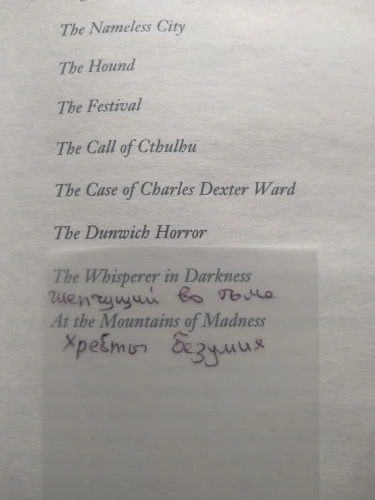 The Nameless City
The Hound
The Festival
The Call of Cthulhu
The Case of Charles Dexter Ward
The Dunwich Horror
The Whisperer in Darkness
Шепчущий во тьме
At the Mountains of Madness
Хребты безумия